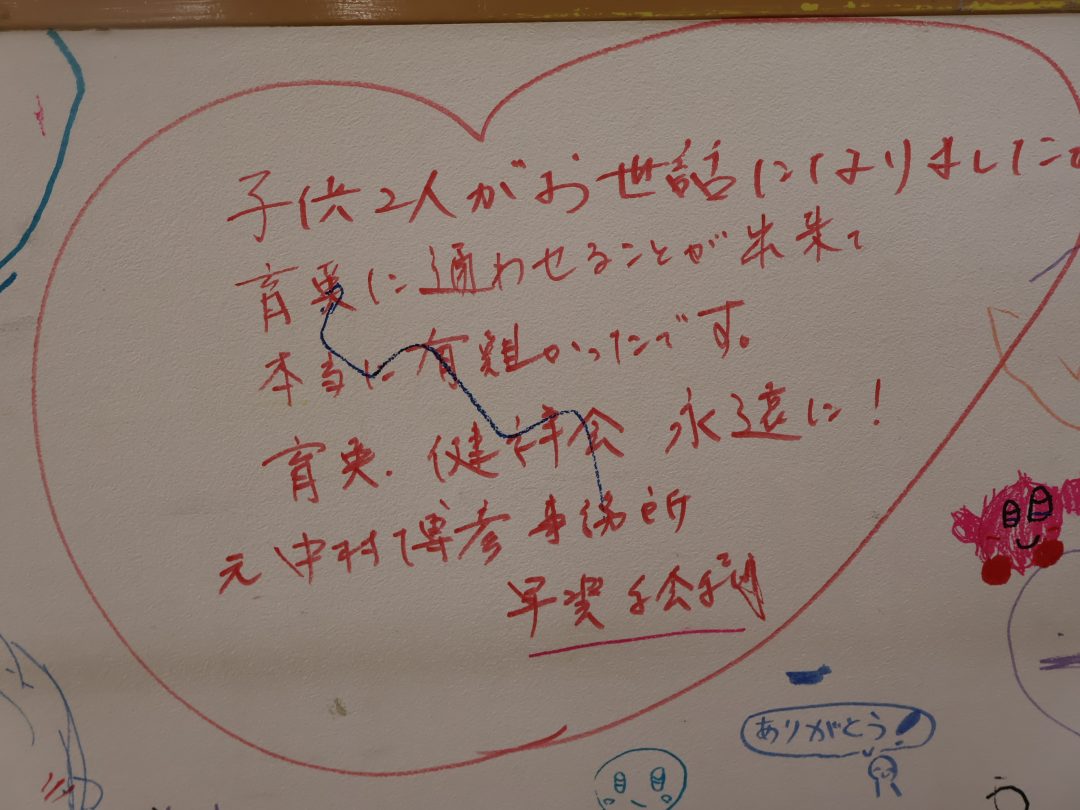 子供2人がお世話になりました
育英に通わせることが出来て
本当に有難かったです。
育英、健祥会 永遠に!
元 中村博彦事務所
ありがとう!